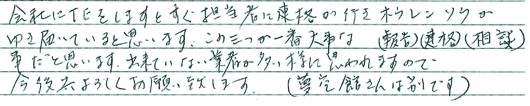 会社にTELをしますとすぐ担当者に連格が行きホウレンソウが
ゆき届いていると思います。この三つが一番大事な (報告)(連格)(相談)
事だと思います。出来ていない業者が多い様に思われますので
今後共よろしくお願い致します。 (夢定館さんは別です)